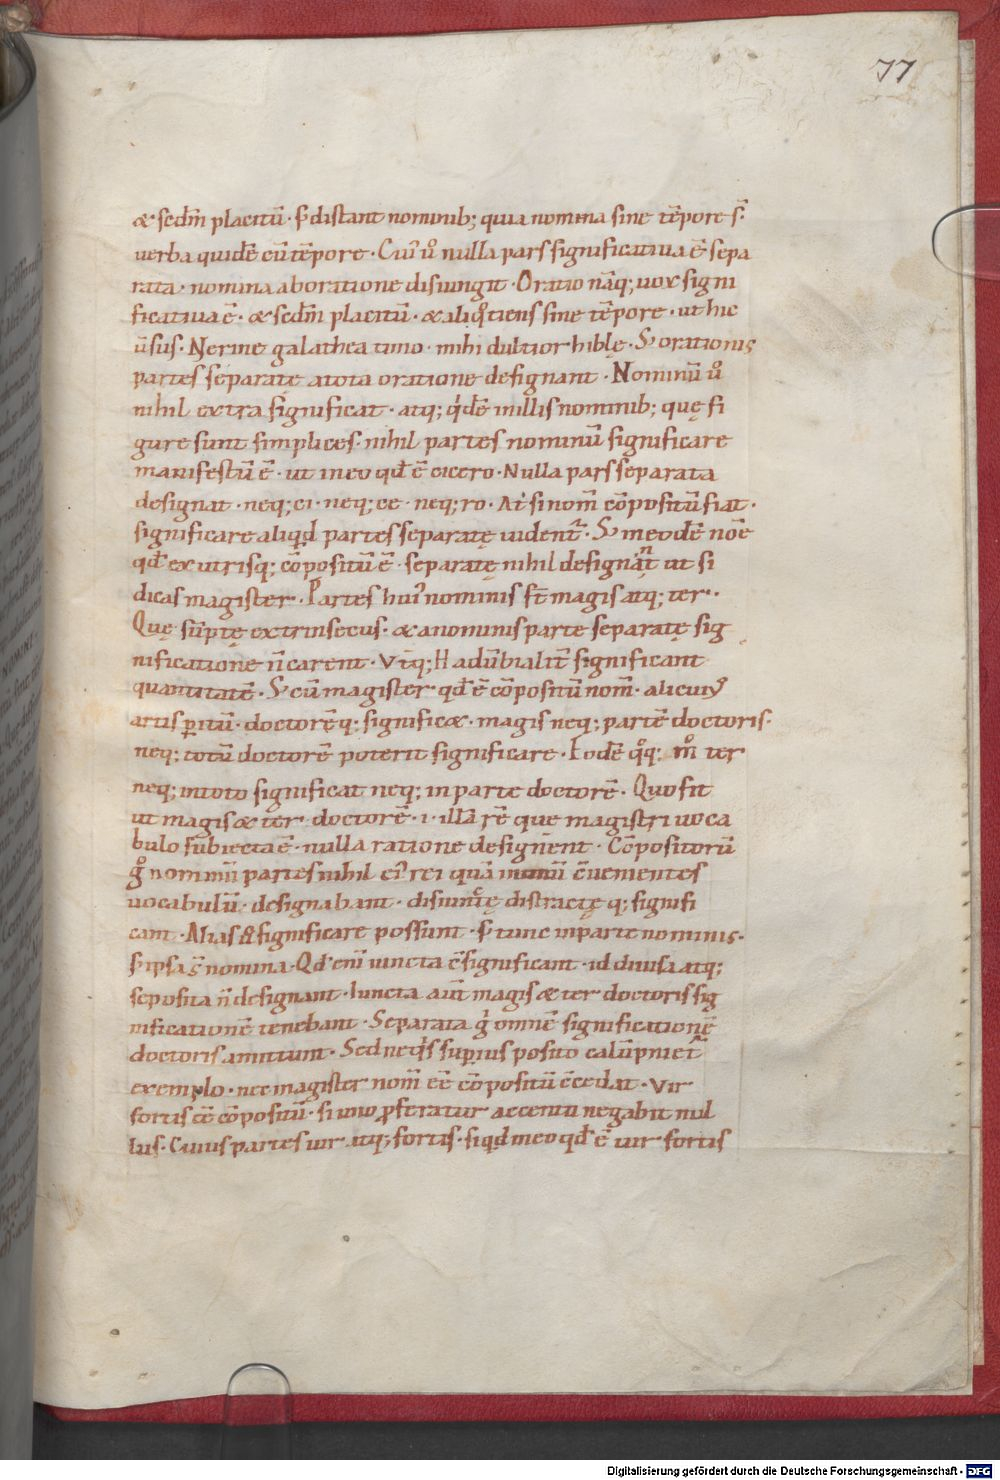 77
& scd̅m placitū · s; distant nominib; quia nomina sine tēpore s̄t
verba quidē cū tēpore · Cui' u° nulla pars significatiua ē sepa
rata · nomina ab oratione disiungit · Oratio nāq; uox signi
ficatiua ē · & scd̅m placitū · & aliq°tiens sine tēpore · ut hic
ūsus · Nerine galathea timo · mihi dulcior hiblę · S; orationis
partes separatę a tota oratione designant · Nominū u°
nihil extra significat · atq; q̇dē in illis nominib; quę fi
gure sunt simplices · nihil partes nominū significare
manifestū ē · ut in eo qd̄ ē cicero · Nulla pars separata
designat · neq; ci · neq; ce · neq; ro · At si nom̄ cōpositū fiat ·
significare aliqd partes separatę uident̄ · S; in eodē nōe
qd̄ ex utrisq; cōpositū ē · separatę nihil designant ut si
dicas magister · Partes hui' nominis s̄t magis atq; ter ·
Quę sūptę extrinsecus · & a nominis parte separatę sig
nificatione n̄ carent · Vtq; H aduūbialit̄ significant
quantitatē · S; cum magister qd̄ ē cōpositū nom̄ · alicui'
artis ꝑitū · doctorēq; signific& · magis neq; partē doctoris ·
neq; totū doctorē poterit significare · Eodē q°q; m° ter
neq; in toto significat neq; in parte doctorē · Quo fit
ut magis & ter doctorē · i · illā rē que magistri uoca
bulo subiecta ē · nulla ratione designent · Cōpositorū
g° nominū partes nihil ei' rei quā in unū cūuenientes
uocabulū · designabant · disiunctę distractęq; signifi
cant · Alias significare possunt · s; tunc in parte nominis ·
s; ipsa s̄ nomina · Qd enī iuncta cūsignificant · id diuisa atq;
seposita n̄ designant · Iuncta aut̄ magis & ter doctoris sig
nificationē tenebant · Separata g° omnē significationē
doctoris amittunt · Sed neq's superius posito calūpniet̄
exemplo · nec magister nom̄ eē cōpositū cūcedat · Vir
fortis eē cōpositū · si uno ꝓferatur accentu negabit nul
lus · Cuius partes uir atq; fortis · siqd in eo qd̄ ē uir fortis
Digitalisierung gefördert durch die Deutsche Forschungsgemeinschaft - DFG